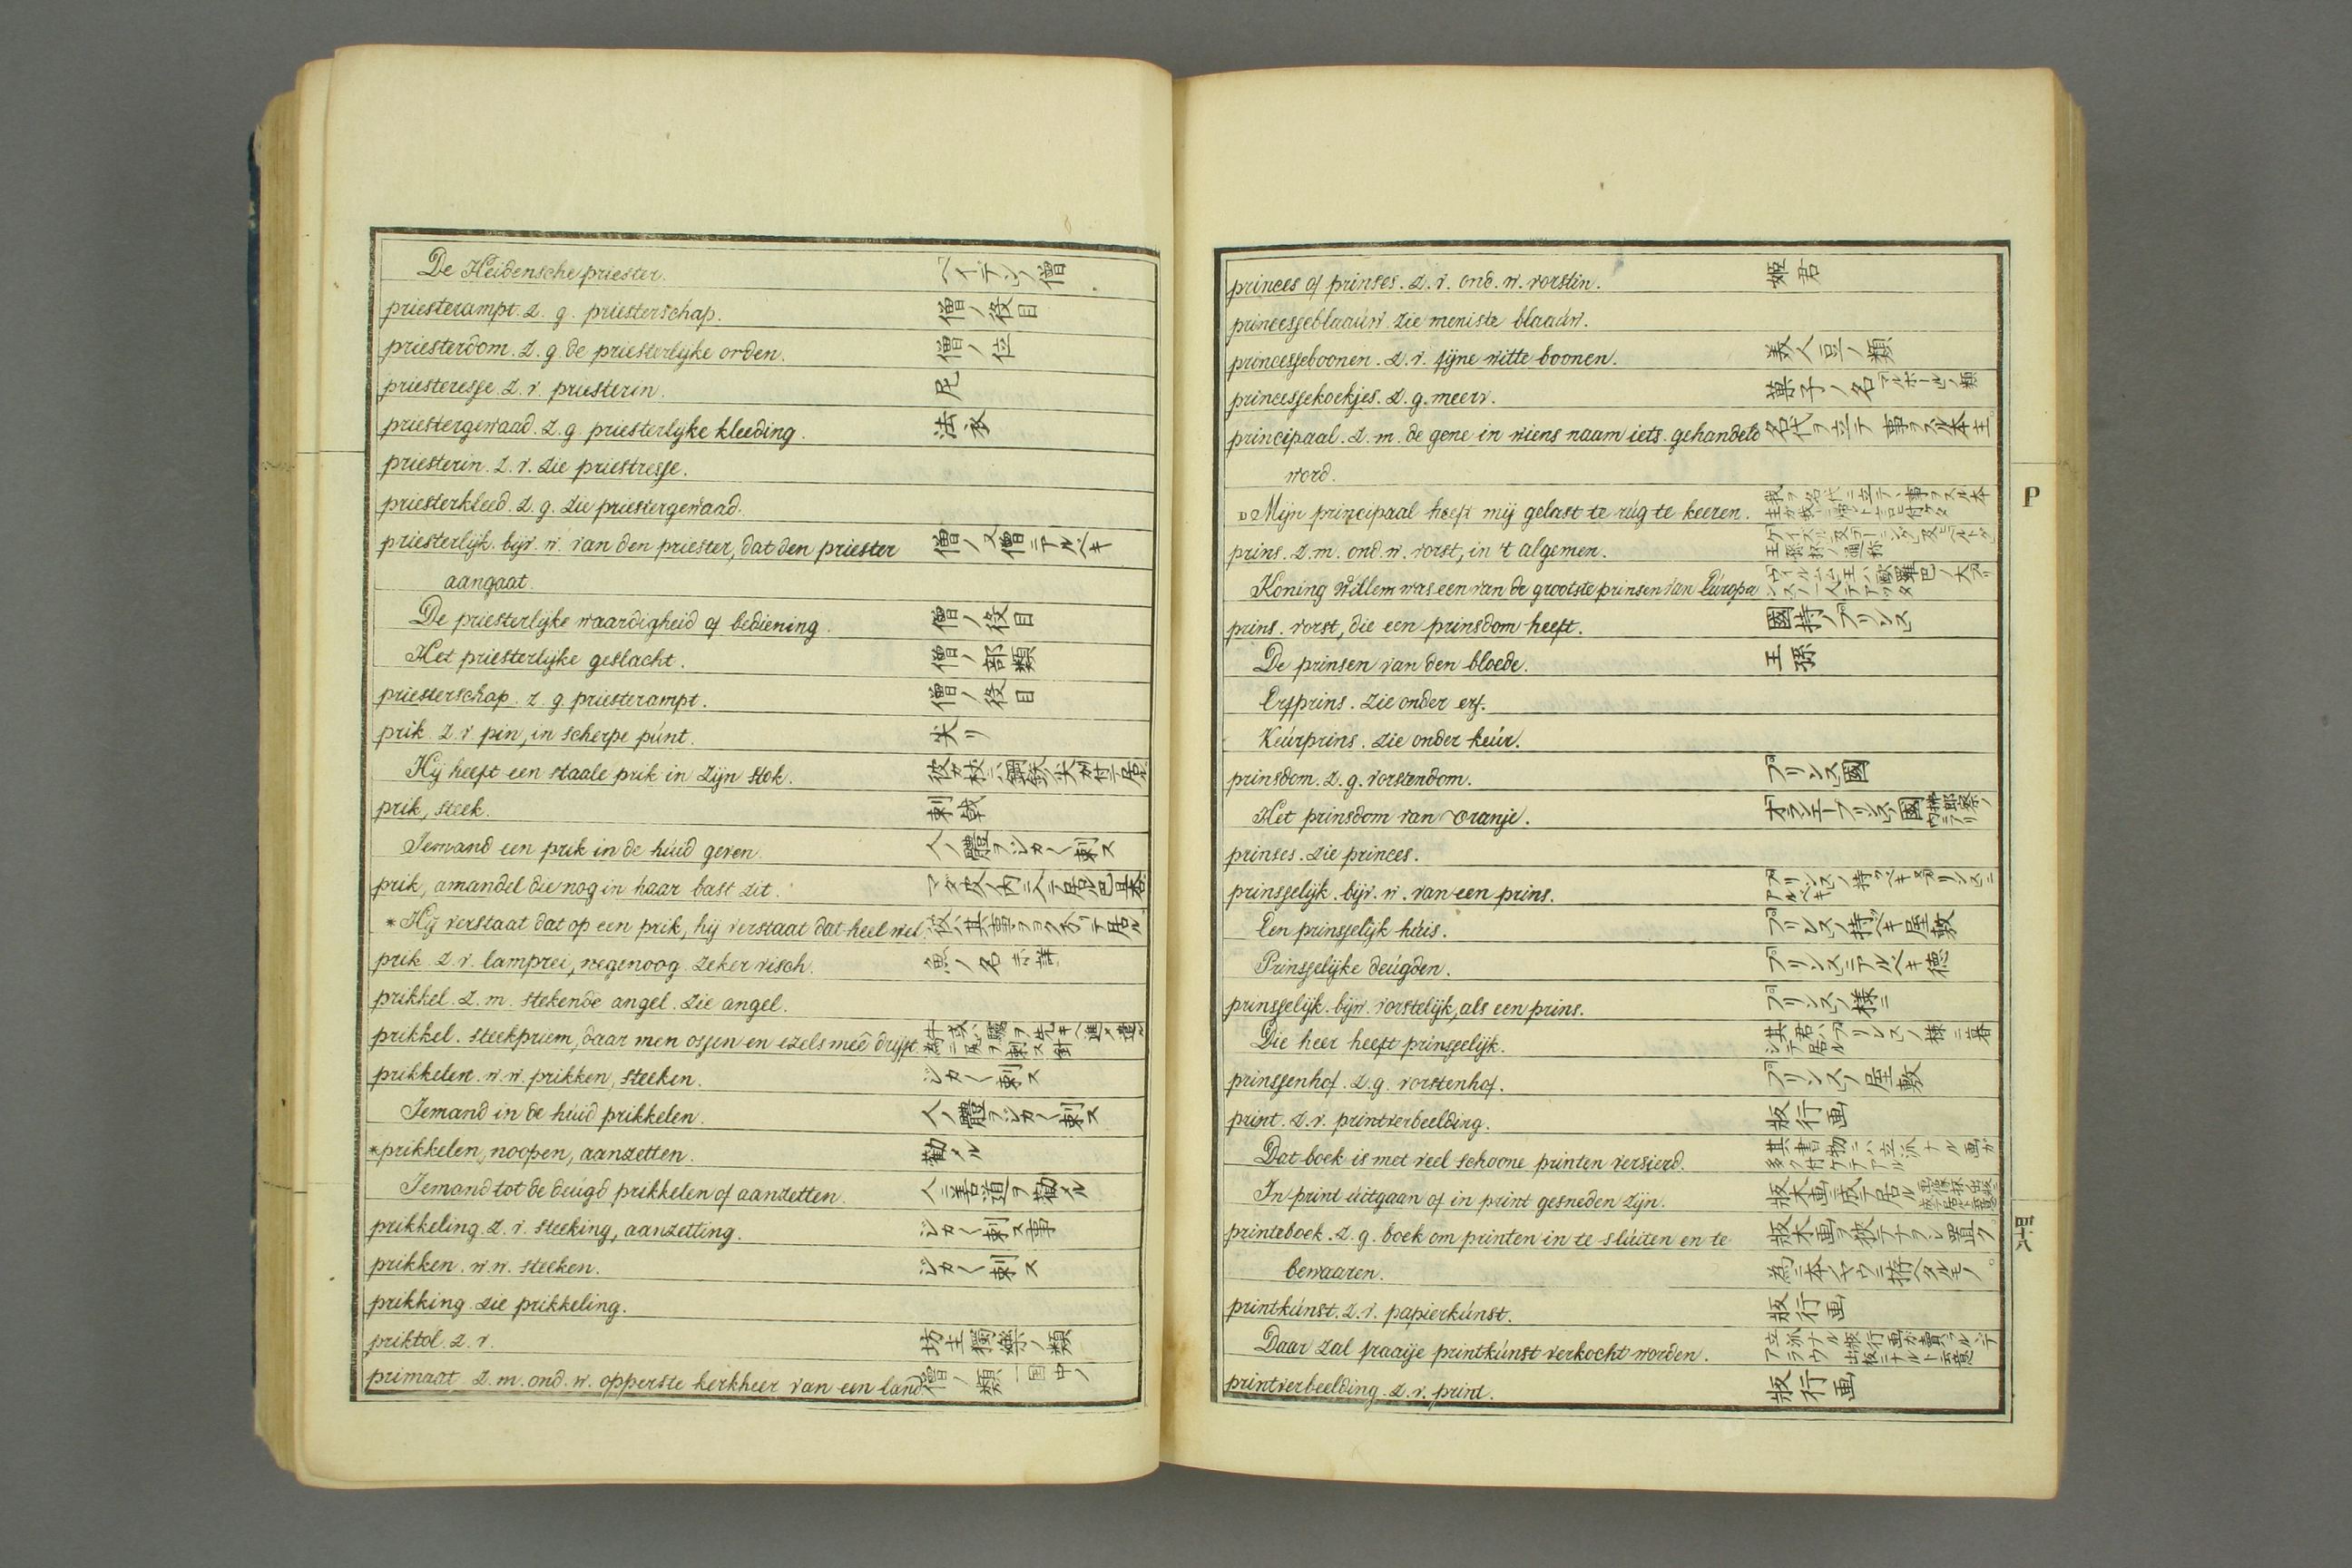 De Heidensche priester. ヘイデンノ僧
priesterampt. z. g. priesterschap. 僧ノ役目
priesterdom. z. g. de priesterlijke orden. 僧ノ位
priesteresse. z. v. priesterin. 尼
priestergewaad. z. g. priesterlijke kleeding. 法衣
priesterin. z. v. zie priestresse.
priesterkleed. z. g. zie priestergewaad.
priesterlijk. bijv. w. van den priester, dat den priester 僧ノ又僧ニアルベキ
aangaat.
De priesterlijke waardigheid of bediening. 僧ノ役目
Het priesterlijke geslacht. 僧ノ部類
priesterschap. z. g. priesterampt. 僧ノ役目
prik. z. v. pin, in scherpe púnt. 尖リ
Hij heeft een staale prik in zijn stok. 彼ガ杖ニハ鋼鉄ノ尖ガ付テ居ル
prik, steek. 刺戟
Iemand een prik in de húid geven. 人ノ體ヲジカ〱刺ス
prik, amandel die nog in haar bast zit. マダ皮ノ内ニ入テ居ル巴旦杏
* Hij verstaat dat op een prik, hij verstaat dat heel wel. 彼ハ其事ヲヨク知テ居ル
prik. z. v. lamprei, negenoog. zeker visch. 魚ノ名 未詳
prikkel. z. m. stekende angel. zie angel.
prikkel. steekpriem, daar men ossen en ezels meê drijft. 牛或ハ驢ヲ先キヘ進メ遣ル為ニ尻ヲ刺ス針
prikkelen. w. w. prikken, steeken. ジカ〱刺ス
Iemand in de húid prikkelen. 人ノ體ヲジカ〱刺ス
*prikkelen, noopen, aanzetten. 勧メル
Iemand tot de deúgd prikkelen of aanzetten. 人ニ善道ヲ勧メル
prikkeling. z. v. steeking, aanzetting. ジカ〱刺ス事
prikken. w. w. steeken. ジカ〱刺ス
prikking. zie prikkeling.
priktol. z. v. 坊主獨樂ノ類
primaat. z. m. ond. w. opperste kerkheer van een land. 僧ノ類 一国中ノ
princes of prinses. z. v. ond. w. vorstin. 姫君
princesseblaaúw. zie meniste blaaúw.
princesseboonen. z. v. fijne witte boonen. 美人豆ノ類
princessekoekjes. z. g. meerv. 菓子ノ名
principaal. z. m. de gene in wiens naam iets gehandeld 名代ヲ立テ事ヲスル本主
word.
Mijn principaal heeft mij gelast te rúg te keeren. 我ヲ名代ニ立テ事ヲスル本主ガ我ニ帰レト云付ケタ
prins. z. m. ond. w. vorst, in 't algemen. 王孫抔ノ通称
Koning Willem was een van de grootste prinsen van Európa ウイルレム王ハ歐羅巴ノ大プリンスノ一人デアツタ
prins. vorst, die een prinsdom heeft. 國持ノプリンス
De prinsen van den bloede. 王孫
Erfprins. zie onder erf.
Keúrprins. zie onder keúr.
prinsdom. z. g. vorstendom. プリンス國
Het prinsdom van Oranje. ヲランエープリンス國 拂郎察ノ内ニアリ
prinses. zie princes.
prinsselijk. bijv. w. van een prins. プリンスノ持ベキ又プリンスニアルベキ
Een prinsselijk húis. プリンスノ持ベキ屋敷
Prinsselijke deúgden. プリンスニアルベキ徳
prinsselijk. bijw. vorstelijk, als een prins. プリンスノ様ニ
Die heer heeft prinsselijk. 其君ハプリンスノ様ニ暮シテ居ル
prinssenhof. z. g. vorstenhof. プリンスノ屋敷
print. z. v. printverbeelding. 板行画
Dat boek is met veel schoone printen versierd. 其書物ニハ立派ナル画ガ多ク付ケテアル
In print úitgaan of in print gesneden zijn. 板木画ニ成テ居ル
printeboek. z. g. boek om printen in te slúiten en te 板木画ヲ狹テナラシ置ク
bewaaren. 為ニ本ノヤウニ拵ヘタルモノ
printkúnst. z. v. papierkúnst. 板行画
Daar zal fraaije printkúnst verkocht worden. 立派ナル板行画ガ賣ラルヽデアラウ
printverbeelding. z. v. print. 板行画
P
四十八